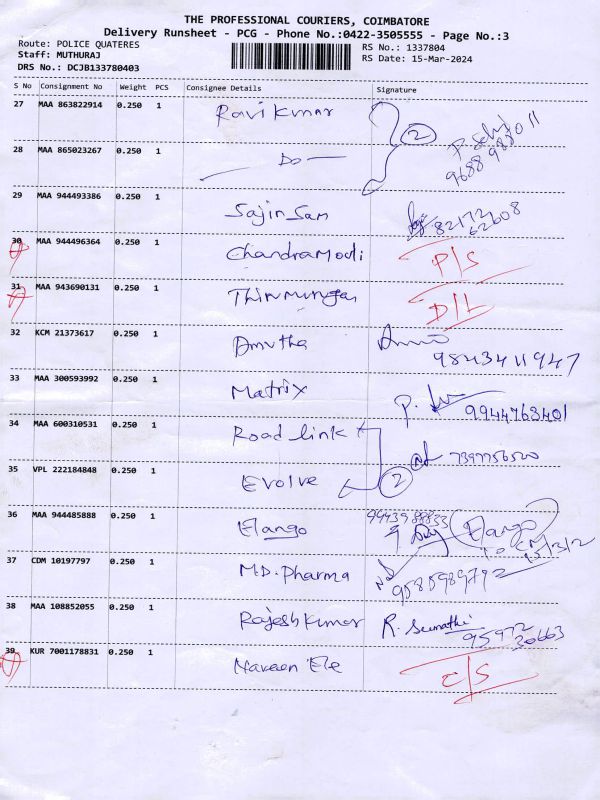 THE PROFESSIONAL COURIERS, COIMBATORE
Delivery Runsheet - PCG - Phone No.:0422-3505555 - Page No.:3
Route: POLICE QUATERES RS No.: 1337804
Staff: MUTHURAJ RS Date: 15-Mar-2024
DRS No.: DCJB133780403
S No Consignment No Weight PCS Consignee Details Signature
27 MAA 863822914 0.250 1 Ravi Kumar 2
28 MAA 865023267 0.250 1 — Do — 9688 983011
29 MAA 944493386 0.250 1 Sajin Sam 82172 62608
30 MAA 944496364 0.250 1 Chandramouli P/S
31 MAA 943690131 0.250 1 Thirumurugan D/L
32 KCM 21373617 0.250 1 Amutha 9843411947
33 MAA 300593992 0.250 1 Matrix 9944763401
34 MAA 600310531 0.250 1 Road link 7397756520
35 VPL 222184848 0.250 1 Evolve 2
36 MAA 944485888 0.250 1 Elango 9993988833 Elango
37 CDM 10197797 0.250 1 MD. Pharma 9585989792
38 MAA 108852055 0.250 1 Rajesh Kumar R. Sumathi 95972 30663
39 KUR 7001178831 0.250 1 Naveen Ele C/S